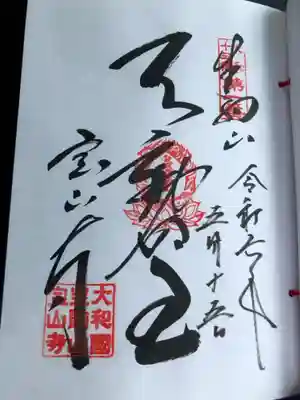 生駒山
令和六年
五月十五日
不動明王
宝山寺
大和國
生駒山
宝山寺